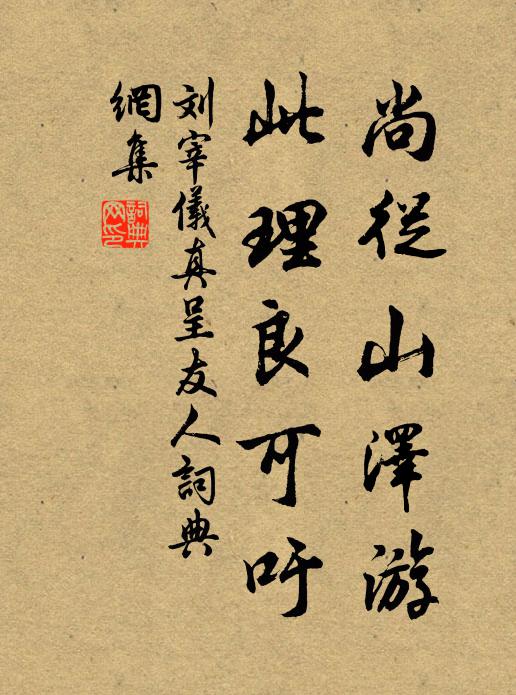 尚從山澤游
此理良可吁
刘宰儀真呈友人詞典
網集
詞典網印